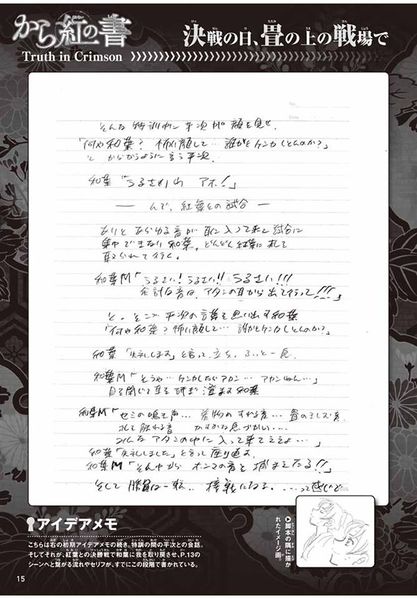 から紅の書
Truth in Crimson
決戦の日、畳の上の戦場で
そんな特訓中に平次が顔を見せ、
「何や和葉? 怖い顔して… 誰かとケンカしとんのか?」
と からかうように言う平次。
和葉「うるさいわ アホ!」
― んで、紅葉との試合 ―
ありとあらゆる音が 耳に入って来て 試合に
集中できない 和葉。どんどん紅葉に札を
取られて行く。
和葉M「うるさい! うるさい!! うるさい!!!
余計な音は、アタシの耳から出て行って!!!」
と、そこへ 平次の言葉を思い出す和葉
「何や和葉? 怖い顔して… 誰かとケンカしとんのか?」
和葉「失礼します」と言って立ち、ふぅと一息
和葉M「そうや… ケンカしたらアカン… アカンねん…」
目を閉じて 耳を研ぎ澄ます和葉
和葉M「セミの鳴く声… 着物のすれる音… 畳のきしむ音
みんな アタシの中に入って来てええよ…」
和葉「失礼しました」と言って座り直す
和葉M「そん中から ホンマの音を 捕まえたる!!」
そして 勝負は一転、接戦になる。…って感じで
アイデアメモ
こちらは右の初期アイデアメモの続き、特訓の間の平次との会話。
そしてそれが、紅葉との決勝戦で和葉に我を取り戻させ、P.13の
シーンへと繋がる流れやセリフが、すでにこの段階で書かれている。
脚本の隅に描か
れたイメージ画。
15